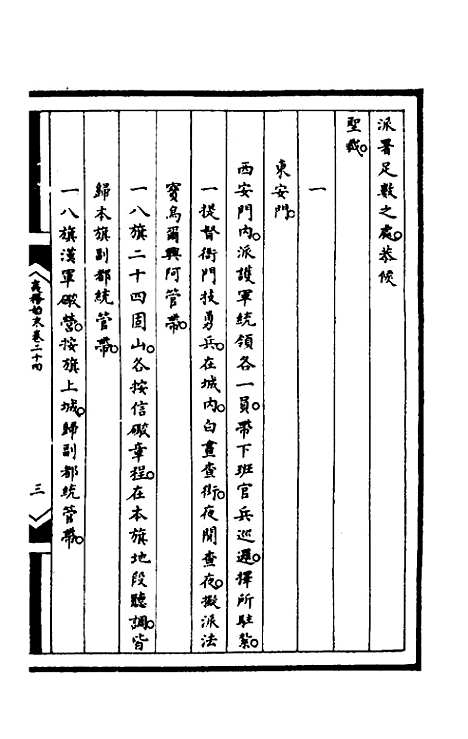 派署足數之處。恭候
聖裁。
一
東安門。
西安門內。派護軍統領各一員。帶下班官兵巡邏。擇所駐紮。
一提督衙門技勇兵。在城內。白晝查街。夜間查夜。擬派法
寶烏爾興阿管帶。
一八旗二十四固山。各按信礮章程。在本旗地段聽調。皆
歸本旗副都統管帶。
一八旗漢軍礮營。按旗上城。歸副都統管帶。
籌辦夷務始末卷二十四
三